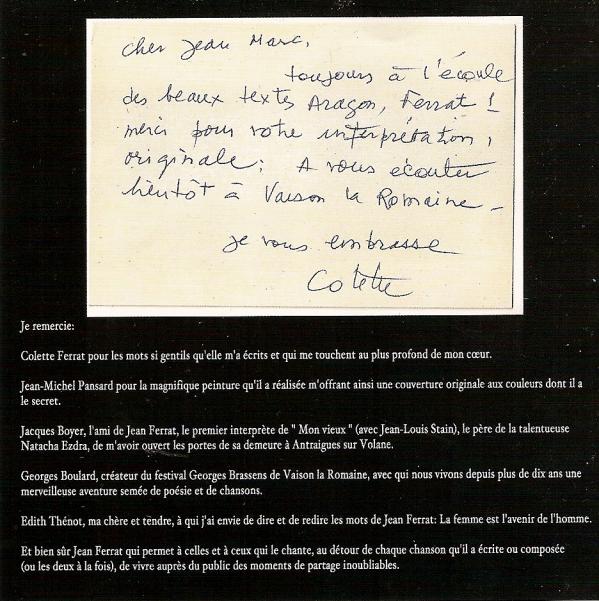 cher Jean Marc,
toujours à l'écoute
des beaux textes Aragon, Ferrat !
merci pour votre interprétation,
originale ; A vous écouter
bientôt à Vaison la Romaine -
je vous embrasse
Colette
Je remercie:
Colette Ferrat pour les mots si gentils qu'elle m'a écrits et qui me touchent au plus profond de mon cœur.
Jean-Michel Pansard pour la magnifique peinture qu'il a réalisée m'offrant ainsi une couverture originale aux couleurs dont il a
le secret.
Jacques Boyer, l'ami de Jean Ferrat, le premier interprète de " Mon vieux " (avec Jean-Louis Stain), le père de la talentueuse
Natacha Ezdra, de m'avoir ouvert les portes de sa demeure à Antraigues sur Volane.
Georges Boulard, créateur du festival Georges Brassens de Vaison la Romaine, avec qui nous vivons depuis plus de dix ans une
merveilleuse aventure semée de poésie et de chansons.
Edith Thénot, ma chère et tendre, à qui j'ai envie de dire et de redire les mots de Jean Ferrat: La femme est l'avenir de l'homme.
Et bien sûr Jean Ferrat qui permet à celles et à ceux qui le chante, au détour de chaque chanson qu'il a écrite ou composée
(ou les deux à la fois), de vivre auprès du public des moments de partage inoubliables.